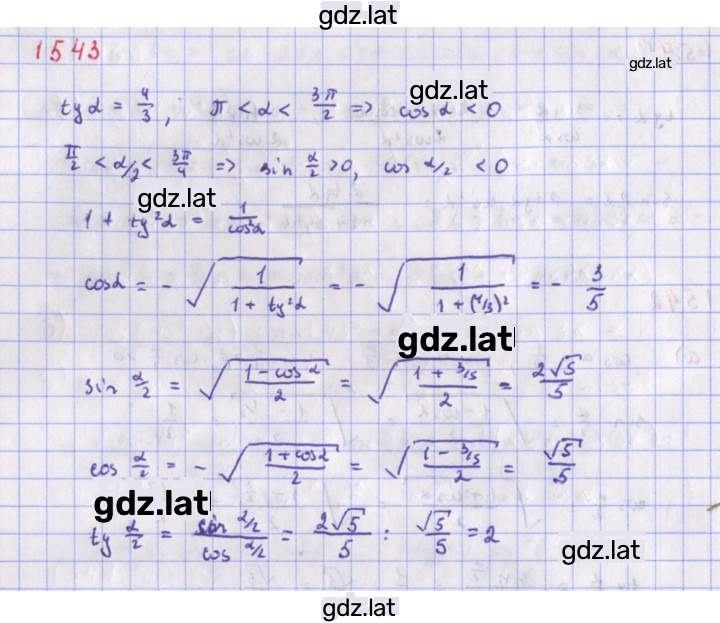 gdz.lat
1543
gdz.lat
gdz.lat
tg α = 4/3 ; π < α < 3π/2 => cos α < 0
π/2 < α/2 < 3π/4 => sin α/2 > 0, cos α/2 < 0
gdz.lat
1 + tg²α = 1/cos²α
cos α = - √(1/(1 + tg²α)) = - √(1/(1 + (4/3)²)) = - 3/5
gdz.lat
sin α/2 = √((1 - cos α)/2) = √((1 + 3/5)/2) = 2√5/5
cos α/2 = - √((1 + cos α)/2) = √((1 - 3/5)/2) = √5/5
gdz.lat
tg α/2 = sin α/2 / cos α/2 = 2√5/5 : √5/5 = 2
gdz.lat
gdz.lat